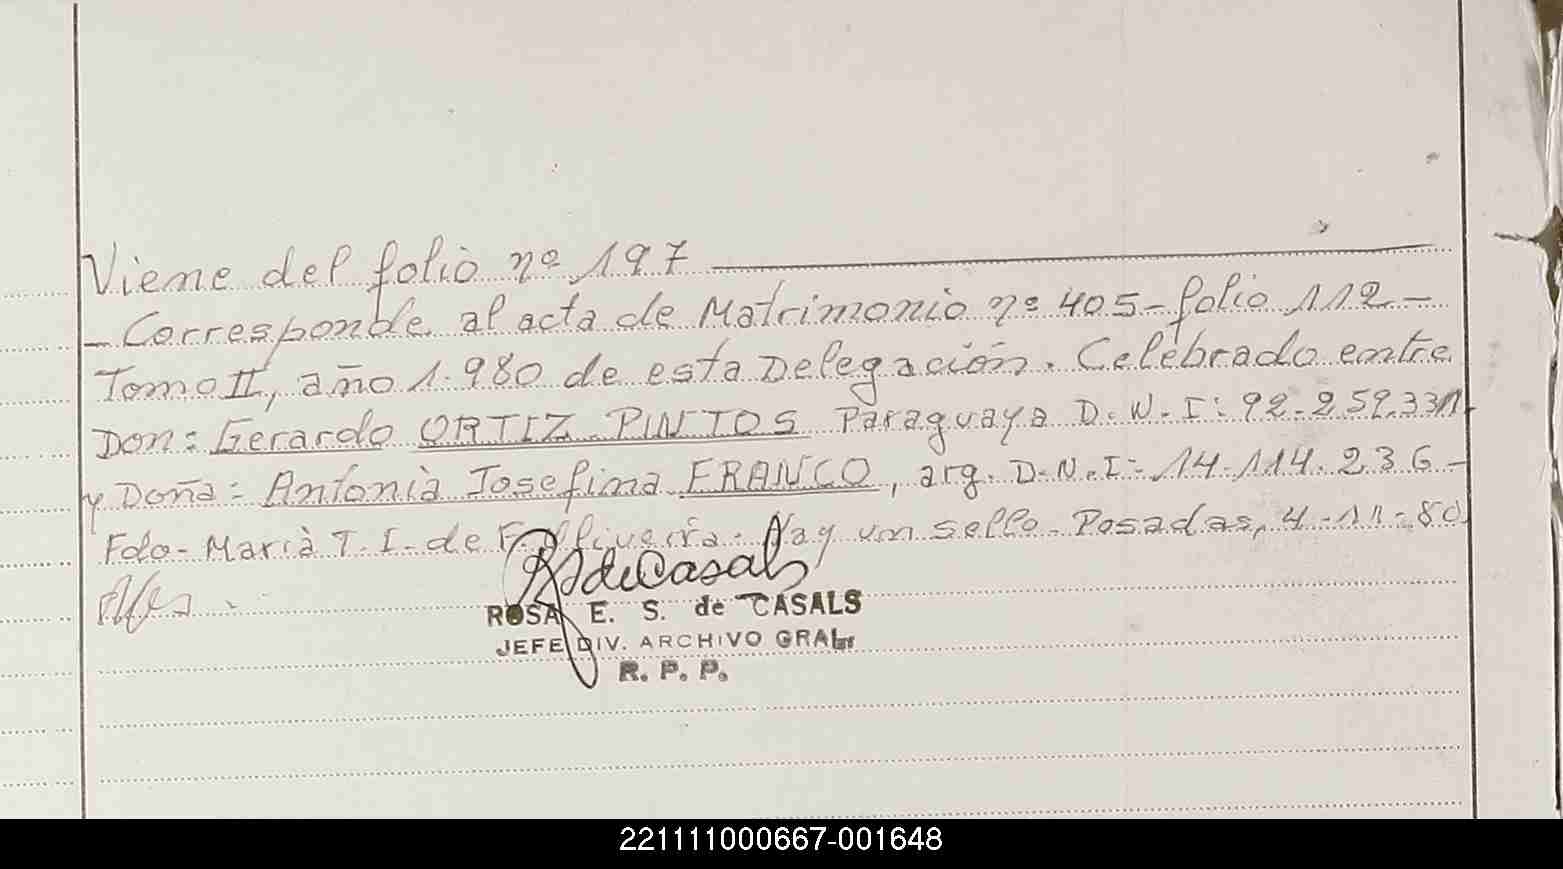 Viene del folio nº 197
- Corresponde al acta de Matrimonio nº 405 - folio 112 -
Tomo II, año 1.980 de esta Delegación. Celebrado entre
Don: Gerardo ORTIZ PINTOS Paraguaya D.N.I: 92.259.331
y Doña: Antonia Josefina FRANCO, arg. D.N.I: 14.114.236 -
Fdo- Maria T. I. de - Hay un sello. Posadas, 4-11-80
RS de Casals
ROSA E. S. de CASALS
JEFE DIV. ARCHIVO GRAL.
R. P. P.
221111000667-001648